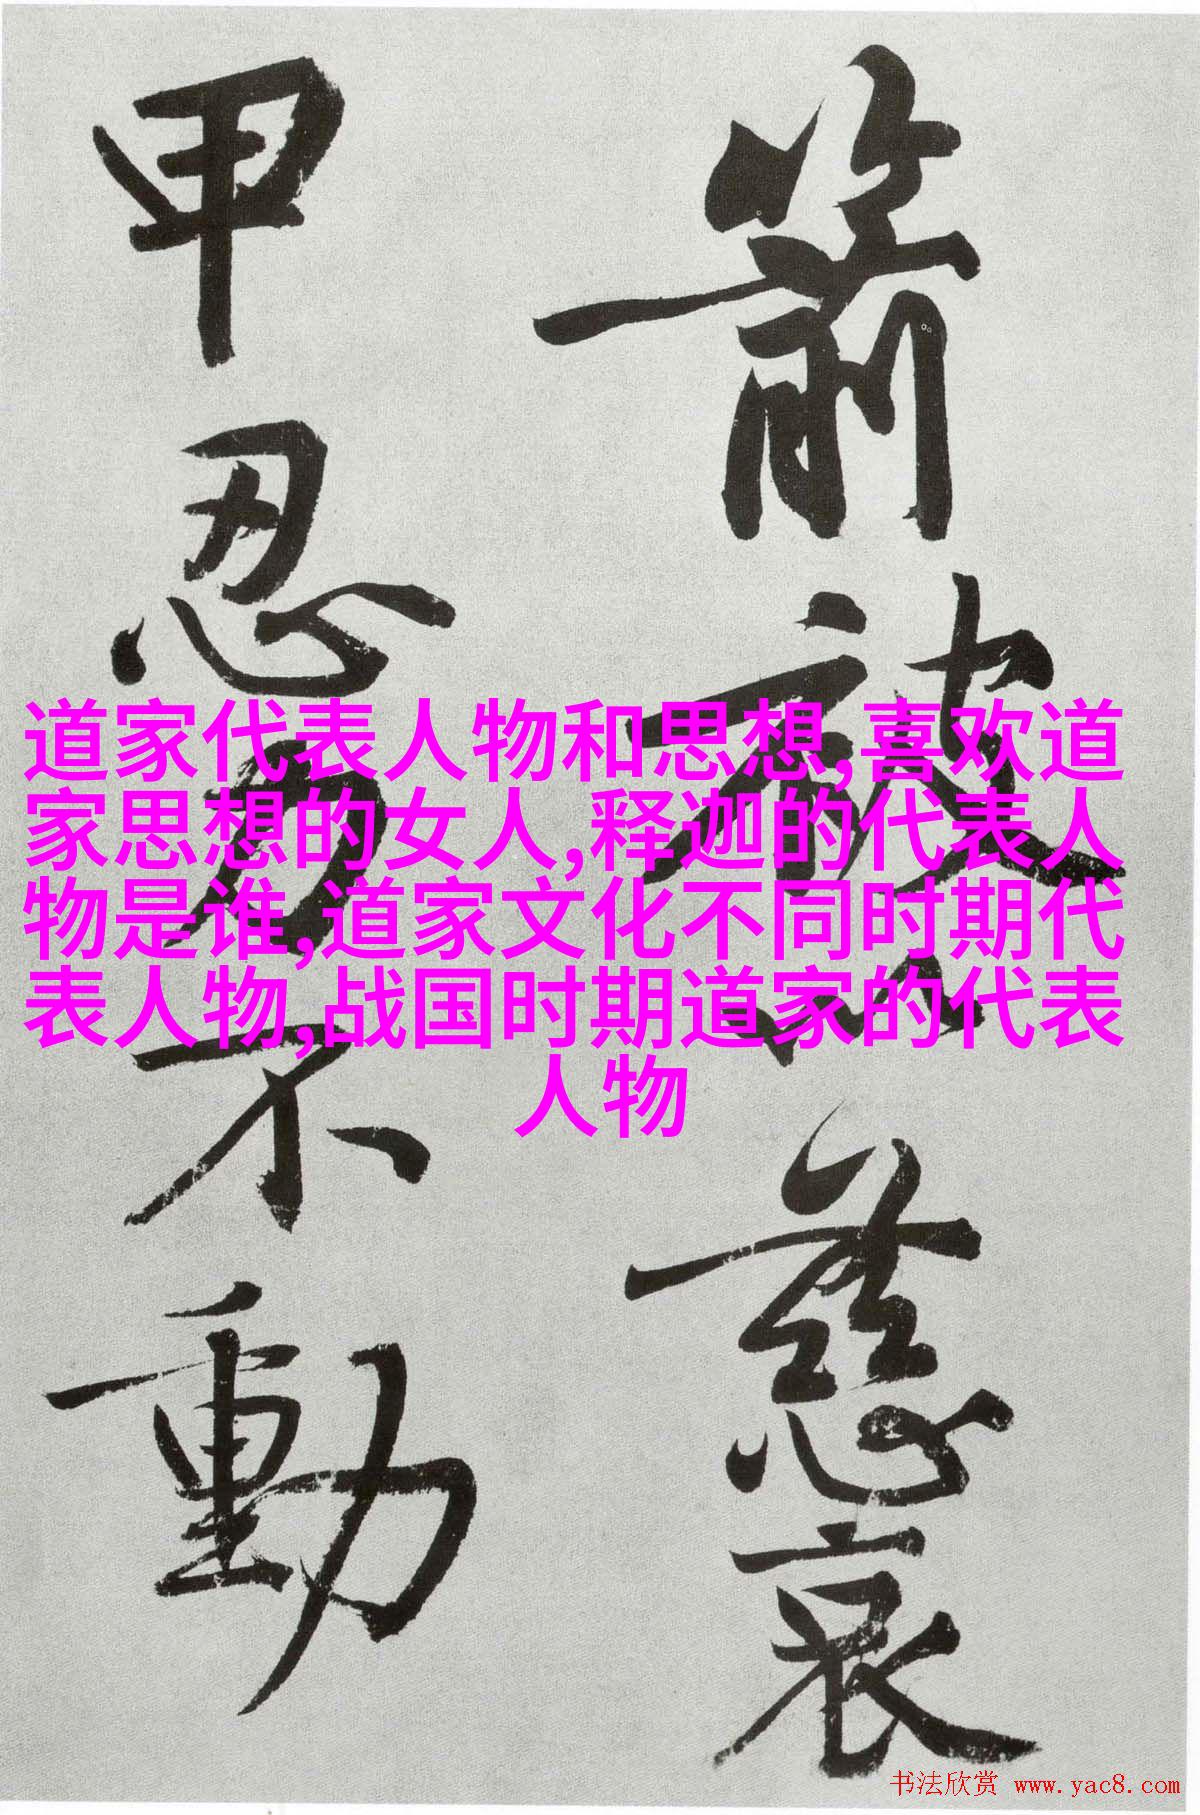 箭被慈哀
甲忍力不動
道家代表人物和思想,喜欢道
家思想的女人,释迦的代表人
物是谁,道家文化不同时期代
表人物,战国时期道家的代表
人物
书法欣赏 www.yac8.com